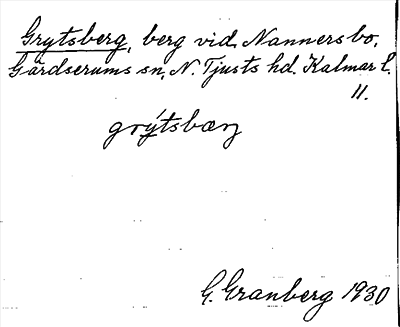 Grytsberg, berg vid Nannersbo,
Gärdserums sn, N. Tjusts hd. Kalmar l.
11.
grýtsbærj
G. Granberg 1930